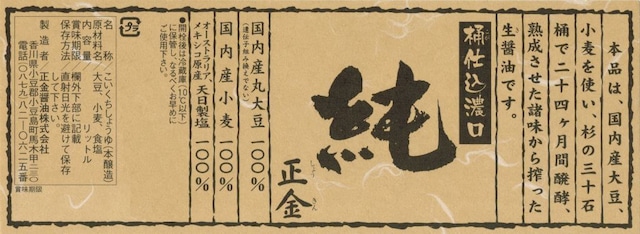 本品は、国内産大豆、
小麦を使い、杉の三十石
桶で二十四ヶ月間醗酵、
熟成させた諸味から搾った
生醤油です。
桶仕込濃口
純
正金
しょう きん
国内産丸大豆 100%
(遺伝子組み換えでない)
国内産小麦 100%
オーストラリア、
メキシコ原産 天日製塩 100%
●開栓後は冷蔵庫(10℃以下)
に保管し、なるべくお早めに
ご使用下さい。
名称 こいくちしょうゆ(本醸造)
原材料名 大豆、小麦、食塩
内容量 リットル
賞味期限 欄外下部に記載
保存方法 直射日光を避けて保存
して下さい。
製造者 正金醤油株式会社
香川県小豆郡小豆島町馬木甲二三〇
電話〇八七九-八二-〇六二五番
プラ
賞味期限